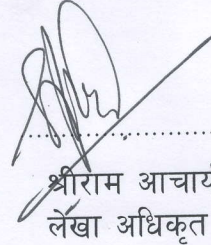 श्रीराम आचार्य
लेखा अधिकृत